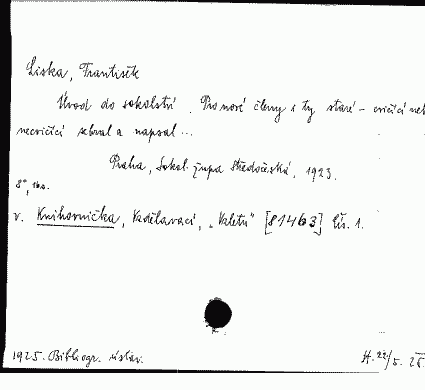 Liska, František
Úvod do sokolství. Pro nové členy i ty staré – cvičící ne
necvičící sebral a napsal ...
Praha, Sokol. župa Středočeská, 1923.
8°,
v. Knihovnička, Vzdělavací, „Vzletu" [81463] čís. 1.
1925. Bibliogr. ústav.
H. 22/5. 25